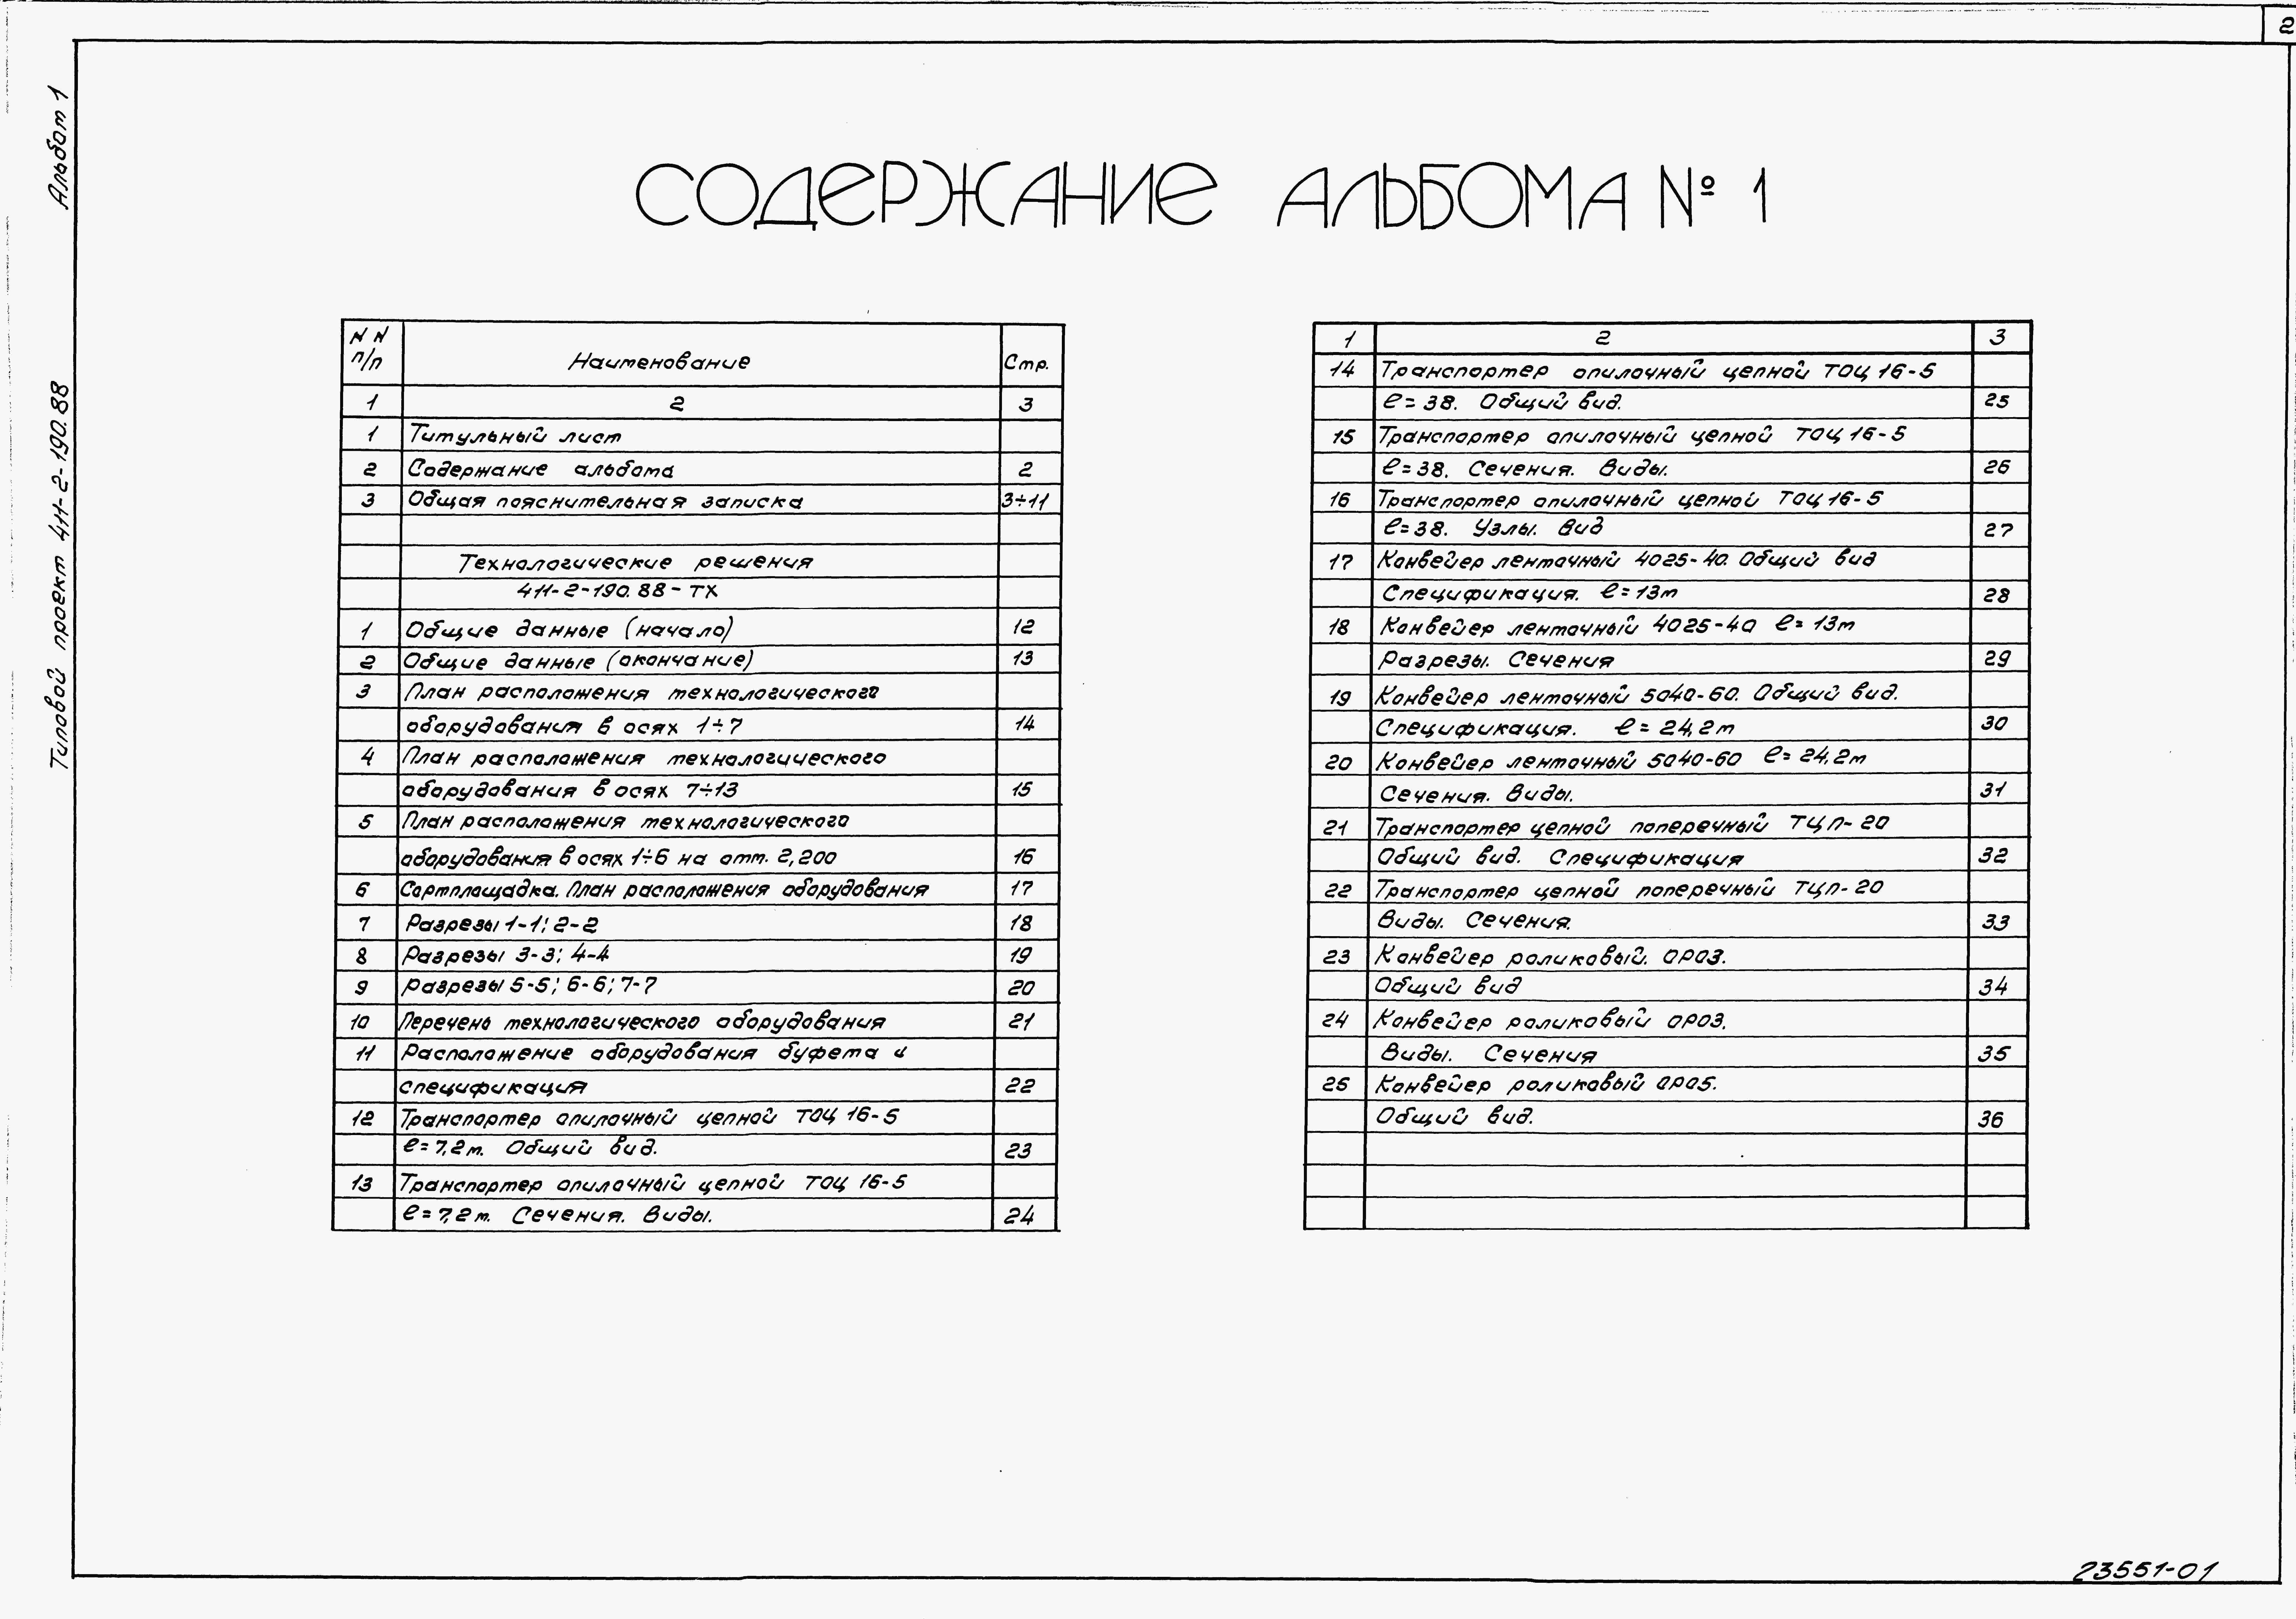 2
Альбом 1
Типовой проект 411-2-190.88
СОДЕРЖАНИЕ АЛЬБОМА № 1
NN п/п Наименование Стр.
1 2 3
1 Титульный лист
2 Содержание альбома 2
3 Общая пояснительная записка 3÷11
Технологические решения
411-2-190.88-ТХ
1 Общие данные (начало) 12
2 Общие данные (окончание) 13
3 План расположения технологического
оборудования в осях 1÷7 14
4 План расположения технологического
оборудования в осях 7÷13 15
5 План расположения технологического
оборудования в осях 1÷6 на отм. 2,200 16
6 Сортплощадка. План расположения оборудования 17
7 Разрезы 1-1; 2-2 18
8 Разрезы 3-3; 4-4 19
9 Разрезы 5-5; 6-6; 7-7 20
10 Перечень технологического оборудования 21
11 Расположение оборудования буфета и
спецификация 22
12 Транспортер опилочный цепной ТОЦ 16-5
ℓ=7,2м. Общий вид. 23
13 Транспортер опилочный цепной ТОЦ 16-5
ℓ=7,2м. Сечения. Виды. 24
1 2 3
14 Транспортер опилочный цепной ТОЦ 16-5
ℓ=38. Общий вид. 25
15 Транспортер опилочный цепной ТОЦ 16-5
ℓ=38. Сечения. Виды. 26
16 Транспортер опилочный цепной ТОЦ 16-5
ℓ=38. Узлы. Вид 27
17 Конвейер ленточный 4025-40. Общий вид
Спецификация. ℓ=13м 28
18 Конвейер ленточный 4025-40 ℓ=13м
Разрезы. Сечения 29
19 Конвейер ленточный 5040-60. Общий вид.
Спецификация. ℓ=24,2м 30
20 Конвейер ленточный 5040-60 ℓ=24,2м
Сечения. Виды. 31
21 Транспортер цепной поперечный ТЦП-20
Общий вид. Спецификация 32
22 Транспортер цепной поперечный ТЦП-20
Виды. Сечения. 33
23 Конвейер роликовый. ОРОЗ.
Общий вид 34
24 Конвейер роликовый ОРОЗ.
Виды. Сечения 35
25 Конвейер роликовый ОРО5.
Общий вид. 36
23551-01